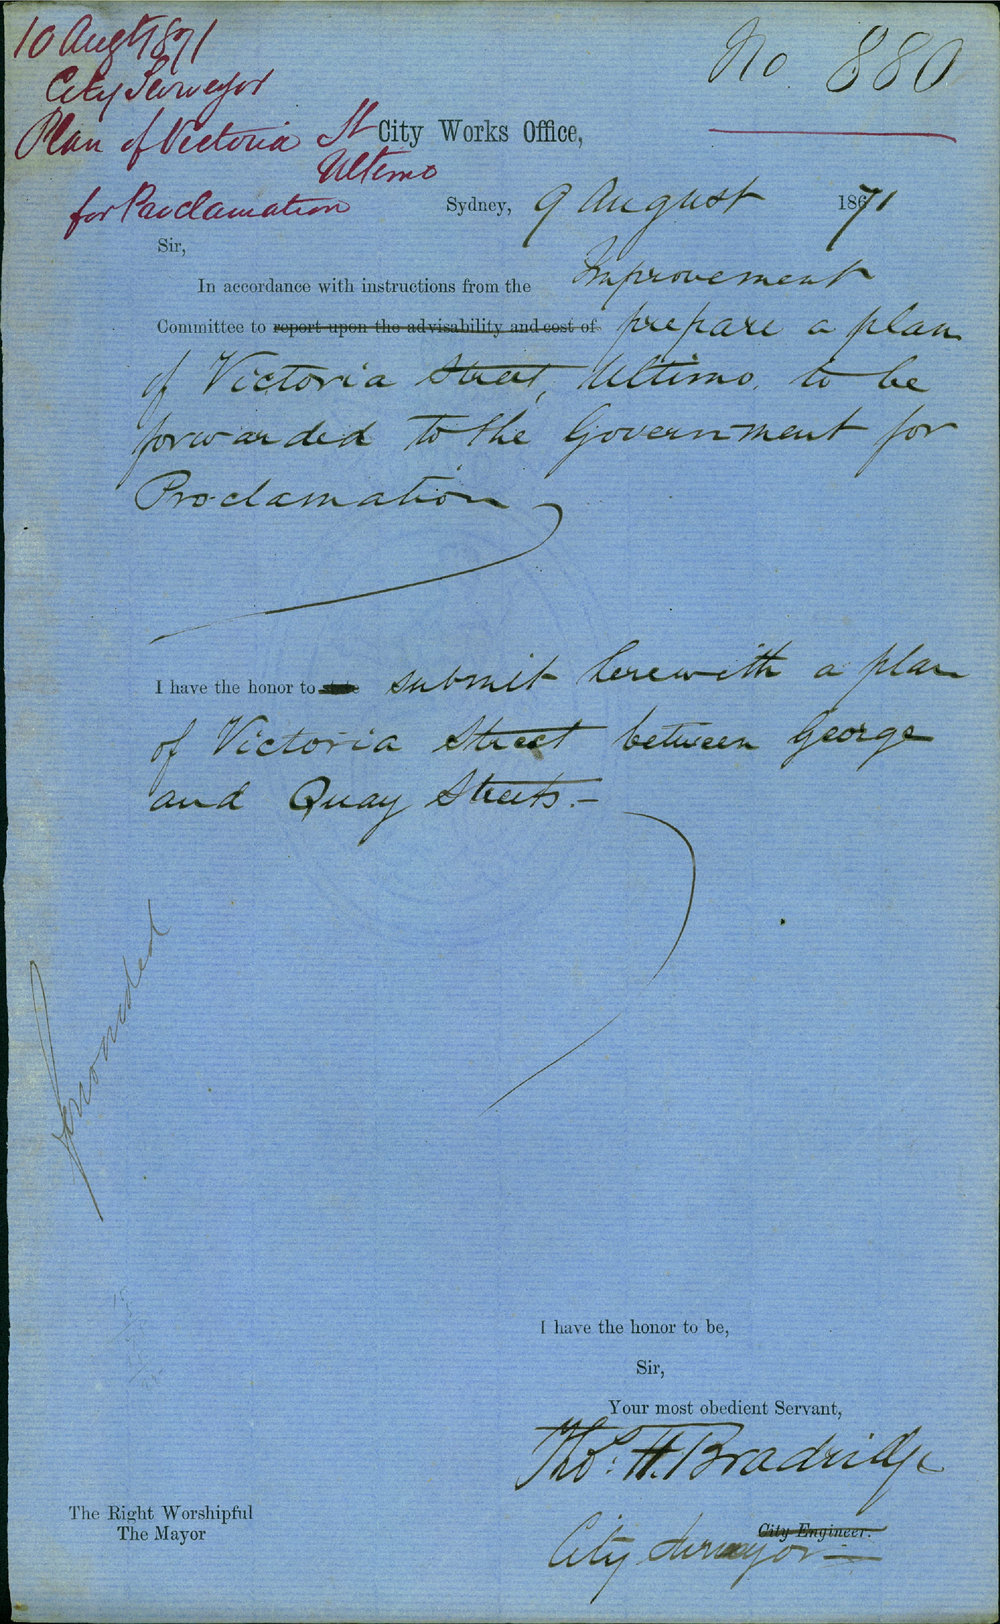 10 Augt 1871
City Surveyor
Plan of Victoria St
Ultimo
for Proclamation
No 880
City Works Office,
Sydney, 9 August 1871
Sir,
In accordance with instructions from the Improvement
Committee to report upon the advisability and cost of prepare a plan
of Victoria Street, Ultimo. to be
forwarded to the Government for
Proclamation
I have the honor to submit herewith a plan
of Victoria Street between George
and Quay Streets.—
forwarded
I have the honor to be,
Sir,
Your most obedient Servant,
Thos. H. Bradridge
City Engineer.
City Surveyor
The Right Worshipful
The Mayor